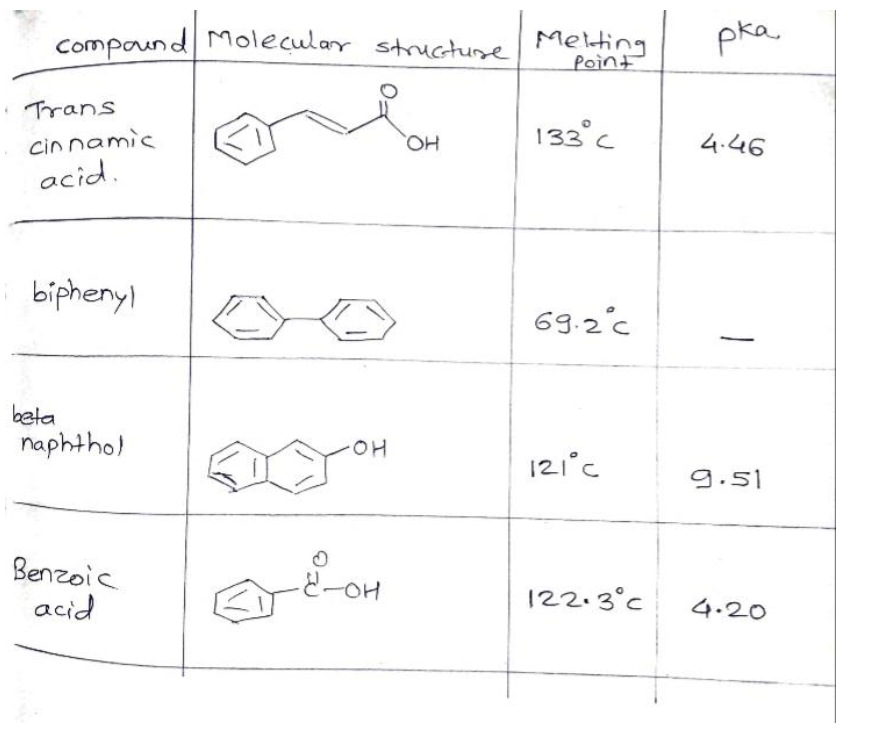 compound Molecular structure Melting Point pka
Trans
cinnamic
acid.
O
OH
133°c
4.46
biphenyl
69.2°c
—
beta
naphthol
OH
121°c
9.51
Benzoic
acid
O
C-OH
122.3°c
4.20